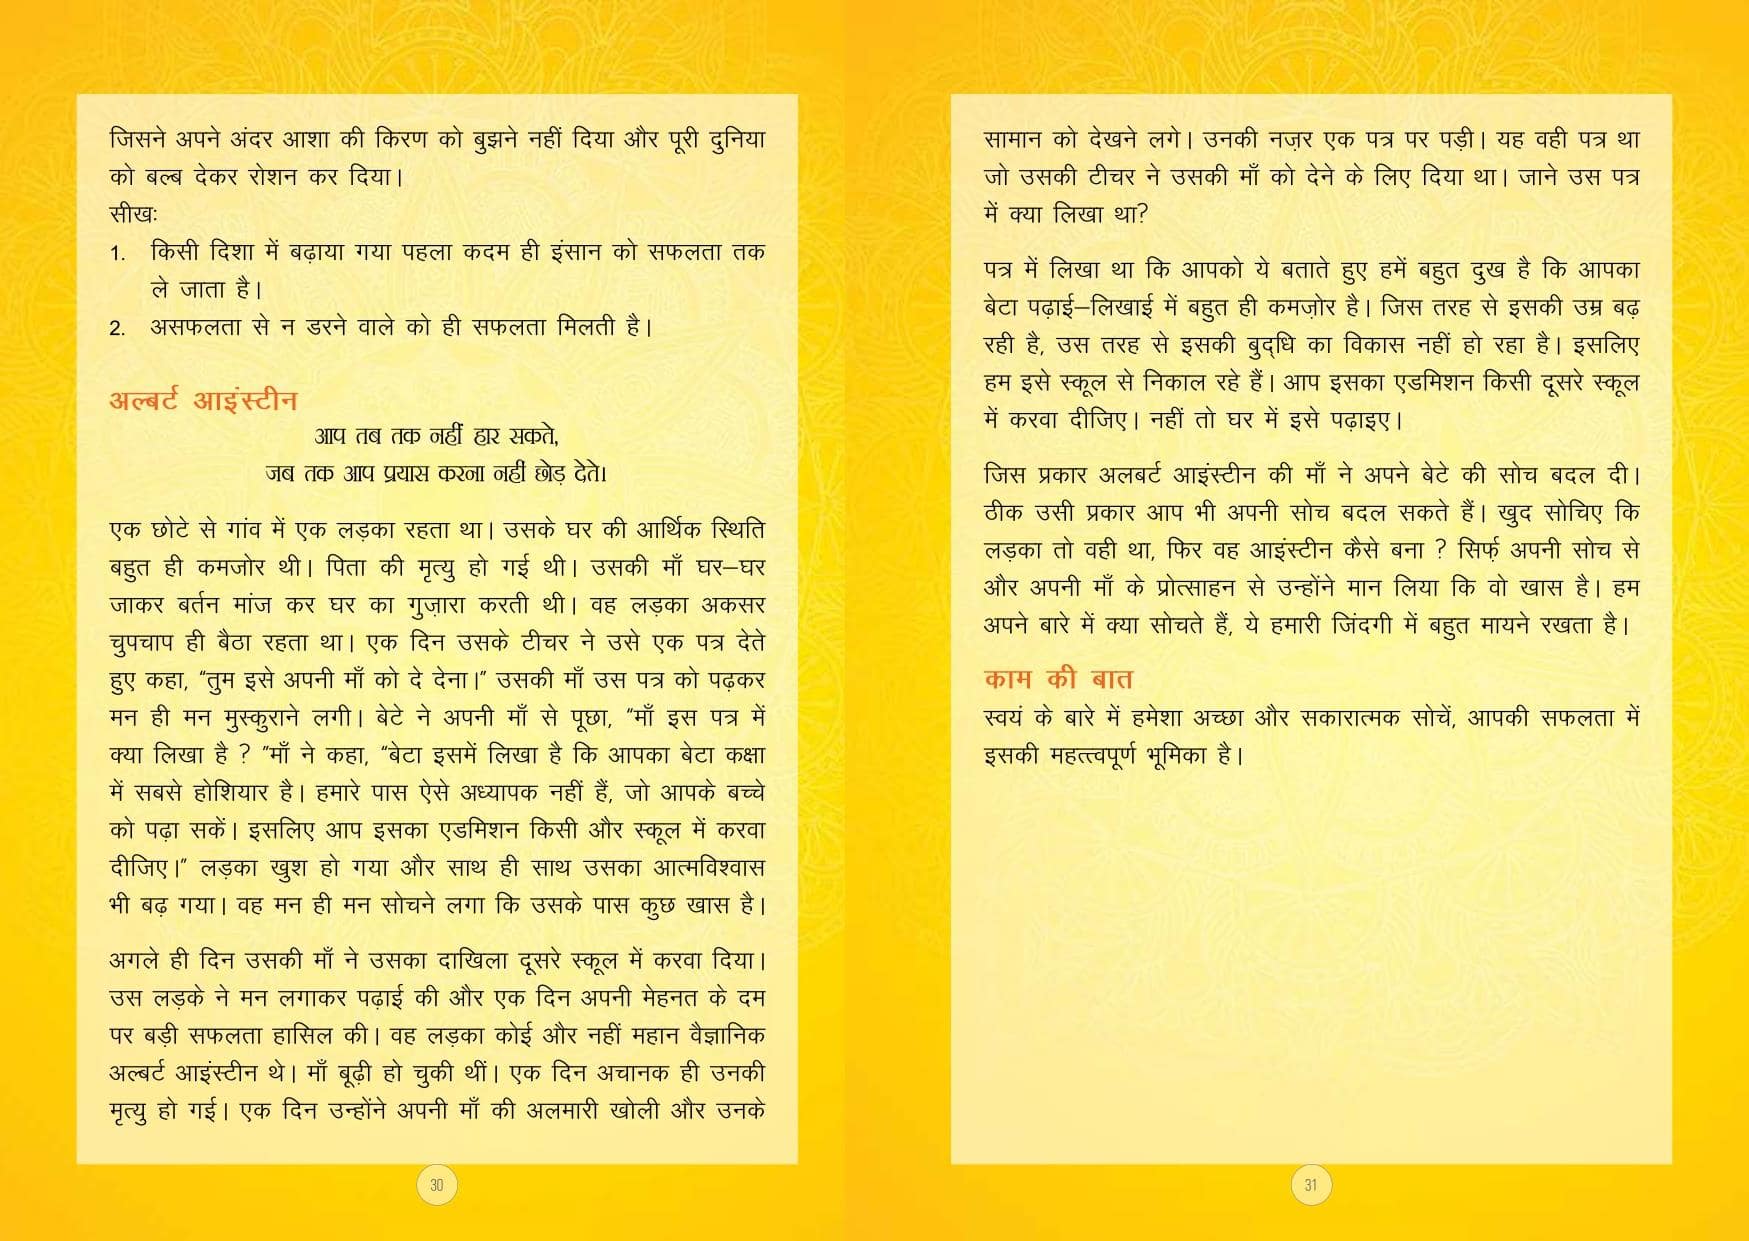 जिसने अपने अंदर आशा की किरण को बुझने नहीं दिया और पूरी दुनिया
को बल्ब देकर रोशन कर दिया।
सीखः
1. किसी दिशा में बढ़ाया गया पहला कदम ही इंसान को सफलता तक
ले जाता है।
2. असफलता से न डरने वाले को ही सफलता मिलती है।
अल्बर्ट आइंस्टीन
आप तब तक नहीं हार सकते,
जब तक आप प्रयास करना नहीं छोड़ देते।
एक छोटे से गांव में एक लड़का रहता था। उसके घर की आर्थिक स्थिति
बहुत ही कमजोर थी। पिता की मृत्यु हो गई थी। उसकी माँ घर–घर
जाकर बर्तन मांज कर घर का गुज़ारा करती थी। वह लड़का अकसर
चुपचाप ही बैठा रहता था। एक दिन उसके टीचर ने उसे एक पत्र देते
हुए कहा, “तुम इसे अपनी माँ को दे देना।” उसकी माँ उस पत्र को पढ़कर
मन ही मन मुस्कुराने लगी। बेटे ने अपनी माँ से पूछा, “माँ इस पत्र में
क्या लिखा है ? ”माँ ने कहा, “बेटा इसमें लिखा है कि आपका बेटा कक्षा
में सबसे होशियार है। हमारे पास ऐसे अध्यापक नहीं हैं, जो आपके बच्चे
को पढ़ा सकें। इसलिए आप इसका एडमिशन किसी और स्कूल में करवा
दीजिए।” लड़का खुश हो गया और साथ ही साथ उसका आत्मविश्वास
भी बढ़ गया। वह मन ही मन सोचने लगा कि उसके पास कुछ खास है।
अगले ही दिन उसकी माँ ने उसका दाखिला दूसरे स्कूल में करवा दिया।
उस लड़के ने मन लगाकर पढ़ाई की और एक दिन अपनी मेहनत के दम
पर बड़ी सफलता हासिल की। वह लड़का कोई और नहीं महान वैज्ञानिक
अल्बर्ट आइंस्टीन थे। माँ बूढ़ी हो चुकी थीं। एक दिन अचानक ही उनकी
मृत्यु हो गई। एक दिन उन्होंने अपनी माँ की अलमारी खोली और उनके
30
सामान को देखने लगे। उनकी नज़र एक पत्र पर पड़ी। यह वही पत्र था
जो उसकी टीचर ने उसकी माँ को देने के लिए दिया था। जाने उस पत्र
में क्या लिखा था?
पत्र में लिखा था कि आपको ये बताते हुए हमें बहुत दुख है कि आपका
बेटा पढ़ाई–लिखाई में बहुत ही कमज़ोर है। जिस तरह से इसकी उम्र बढ़
रही है, उस तरह से इसकी बुद्धि का विकास नहीं हो रहा है। इसलिए
हम इसे स्कूल से निकाल रहे हैं। आप इसका एडमिशन किसी दूसरे स्कूल
में करवा दीजिए। नहीं तो घर में इसे पढ़ाइए।
जिस प्रकार अलबर्ट आइंस्टीन की माँ ने अपने बेटे की सोच बदल दी।
ठीक उसी प्रकार आप भी अपनी सोच बदल सकते हैं। खुद सोचिए कि
लड़का तो वही था, फिर वह आइंस्टीन कैसे बना ? सिर्फ़ अपनी सोच से
और अपनी माँ के प्रोत्साहन से उन्होंने मान लिया कि वो खास है। हम
अपने बारे में क्या सोचते हैं, ये हमारी जिंदगी में बहुत मायने रखता है।
काम की बात
स्वयं के बारे में हमेशा अच्छा और सकारात्मक सोचें, आपकी सफलता में
इसकी महत्त्वपूर्ण भूमिका है।
31